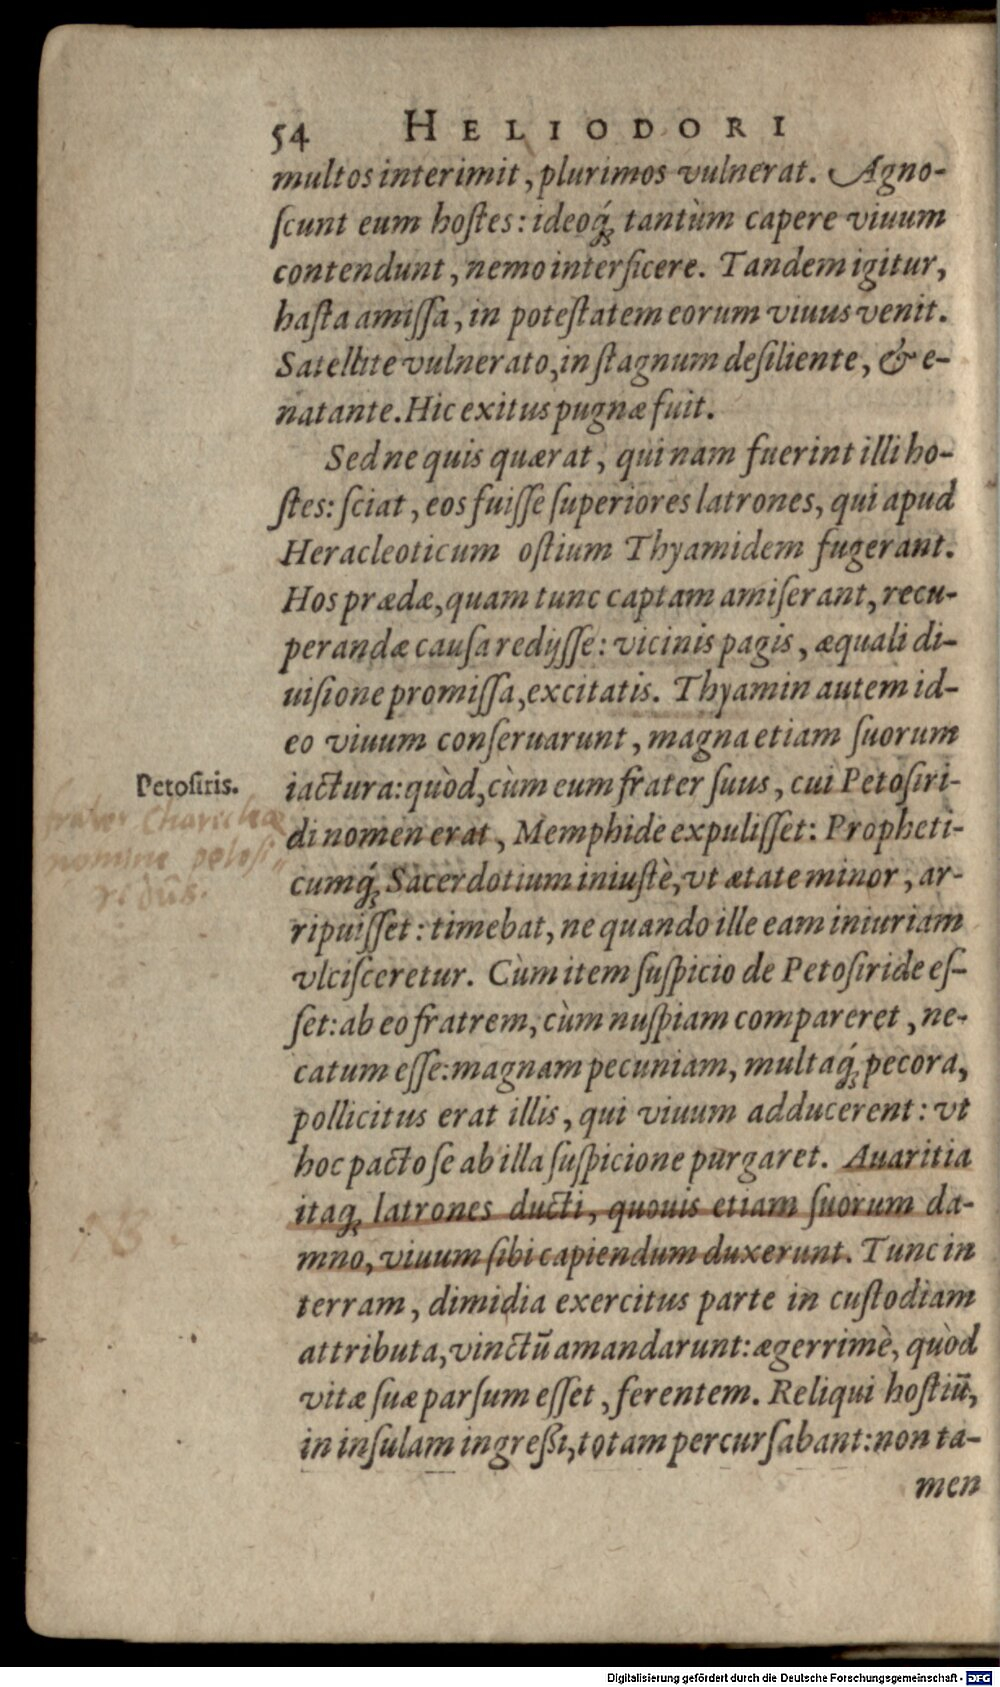 54 HELIODORI
multos interimit, plurimos vulnerat. Agno-
ſcunt eum hoſtes: ideoq́ꝫ tantùm capere viuum
contendunt, nemo interficere. Tandem igitur,
haſta amiſſa, in poteſtatem eorum viuus venit.
Satellite vulnerato, in ſtagnum deſiliente, & e-
natante. Hic exitus pugnæ fuit.
Sed ne quis quærat, quinam fuerint illi ho-
ſtes: ſciat, eos fuiſſe ſuperiores latrones, qui apud
Heracleoticum oſtium Thyamidem fugerant.
Hos prædæ, quam tunc captam amiſerant, recu-
perandæ cauſa redijſſe: vicinis pagis, æquali di-
uiſione promiſſa, excitatis. Thyamin autem id-
eo viuum conſeruarunt, magna etiam ſuorum
Petoſiris.
iactura: quòd, cùm eum frater ſuus, cui Petoſiri-
frater Charicleæ
di nomen erat, Memphide expuliſſet: Propheti-
nomine
cumq́ꝫ Sacerdotium iniuſtè, vt ætate minor, ar-
ripuiſſet: timebat, ne quando ille eam iniuriam
vlciſceretur. Cùm item ſuſpicio de Petoſiride eſ-
ſet: ab eo fratrem, cùm nuſpiam compareret, ne-
catum eſſe: magnam pecuniam, multaq́ꝫ pecora,
pollicitus erat illis, qui viuum adducerent: vt
hoc pacto ſe ab illa ſuſpicione purgaret. Auaritia
itaqꝫ latrones ducti, quouis etiam ſuorum da-
mno, viuum ſibi capiendum duxerunt. Tunc in
terram, dimidia exercitus parte in cuſtodiam
attributa, vinctū amandarunt: ægerrimè, quòd
vitæ ſuæ parſum eſſet, ferentem. Reliqui hoſtiū,
in inſulam ingreßi, totam percurſabant: non ta-
men
Digitalisierung gefördert durch die Deutsche Forschungsgemeinschaft - DFG